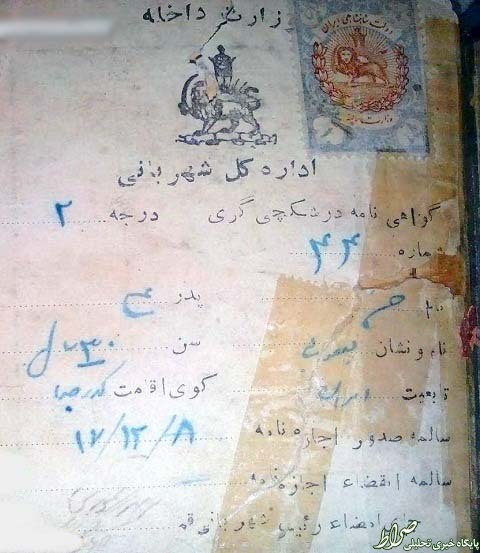 وزارت داخله
دولت شاهنشاهی ایران
وزارت مالیه
اداره کل شهربانی
گواهی نامه درشکه‌چی گری درجه ۲
شماره ۴۴
نام پدر
نام و نشان سن ۳۰
تابعیت ایران کوی اقامت
سالمه صدور اجازه نامه ۱۷/۱۲/۸
سالمه انقضاء اجازه نامه
امضاء رئیس شهربانی قم
صراط
پایگاه خبری تحلیلی